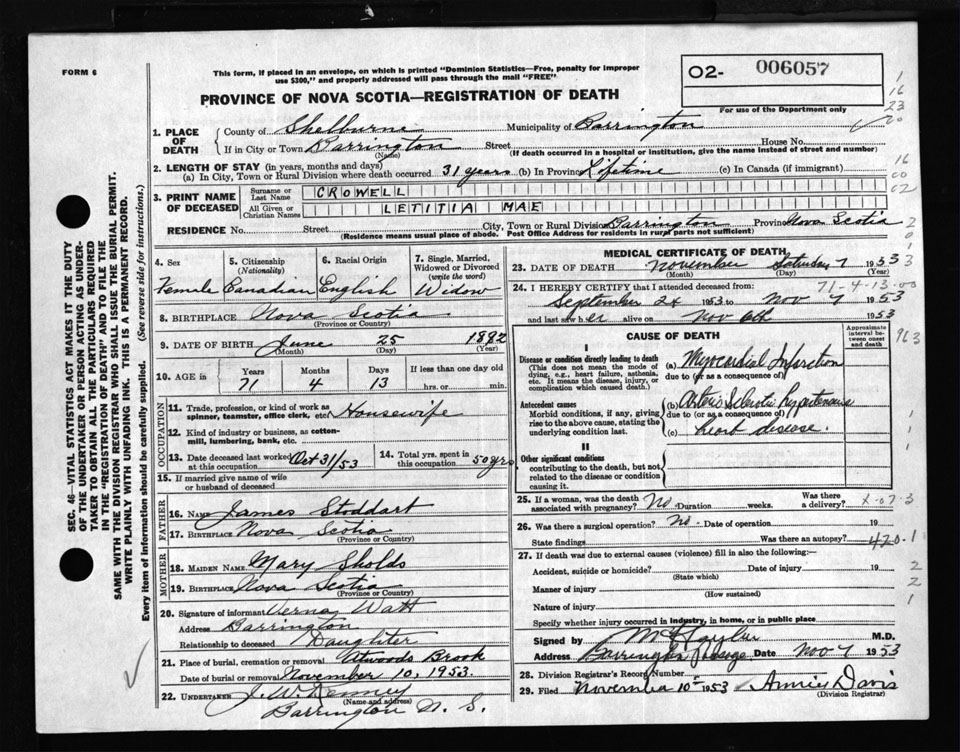 FORM 6
This form, if placed in an envelope, on which is printed "Dominion Statistics—Free, penalty for improper
use $300," and properly addressed will pass through the mail "FREE"
O2- 006057
For use of the Department only
PROVINCE OF NOVA SCOTIA—REGISTRATION OF DEATH
1. PLACE OF DEATH
County of Shelburne Municipality of Barrington
If in City or Town Barrington Street House No.
(Name) (If death occurred in a hospital or institution, give the name instead of street and number)
2. LENGTH OF STAY (in years, months and days)
(a) In City, Town or Rural Division where death occurred 31 years (b) In Province Lifetime (c) In Canada (if immigrant)
3. PRINT NAME OF DECEASED
Surname or Last Name CROWELL
All Given or Christian Names LETITIA MAE
RESIDENCE No. Street City, Town or Rural Division Barrington Province Nova Scotia
(Residence means usual place of abode. Post Office Address for residents in rural parts not sufficient)
4. Sex
Female
5. Citizenship
(Nationality)
Canadian
6. Racial Origin
English
7. Single, Married,
Widowed or Divorced
(write the word)
Widow
8. BIRTHPLACE Nova Scotia
(Province or Country)
9. DATE OF BIRTH June 25 1882
(Month) (Day) (Year)
10. AGE in Years Months Days If less than one day old
71 4 13 hrs. or min.
OCCUPATION
11. Trade, profession, or kind of work as
spinner, teamster, office clerk, etc. Housewife
12. Kind of industry or business, as cotton-
mill, lumbering, bank, etc.
13. Date deceased last worked
at this occupation Oct 31/53
14. Total yrs. spent in
this occupation 50 yrs
15. If married give name of wife
or husband of deceased
FATHER
16. NAME James Stoddart
17. BIRTHPLACE Nova Scotia
(Province or Country)
MOTHER
18. MAIDEN NAME Mary Sholds
19. BIRTHPLACE Nova Scotia
(Province or Country)
20. Signature of informant Verna Watt
Address Barrington
Relationship to deceased Daughter
21. Place of burial, cremation or removal Atwoods Brook
Date of burial or removal November 10, 1953.
22. UNDERTAKER J. W. Denney
(Name and address)
Barrington N. S.
MEDICAL CERTIFICATE OF DEATH
23. DATE OF DEATH November Saturday 7 1953
(Month) (Day) (Year)
71-4-13-00
24. I HEREBY CERTIFY that I attended deceased from:
September 24 1953 to Nov 7 1953
and last saw her alive on Nov 6th 1953
CAUSE OF DEATH
Approximate
interval be-
tween onset
and death
I
Disease or condition directly leading to death
(This does not mean the mode of
dying, e.g., heart failure, asthenia,
etc. It means the disease, injury, or
complication which caused death.)
(a) Myocardial Infarction
due to (or as a consequence of)
Antecedent causes
Morbid conditions, if any, giving
rise to the above cause, stating the
underlying condition last.
(b) Arterio Sclerotic hypertensive
due to (or as a consequence of)
(c) heart disease.
II
Other significant conditions
contributing to the death, but not
related to the disease or condition
causing it.
25. If a woman, was the death
associated with pregnancy? No Duration weeks. Was there
a delivery?
26. Was there a surgical operation? no. Date of operation 19
State findings Was there an autopsy?
420.1
27. If death was due to external causes (violence) fill in also the following:—
Accident, suicide or homicide? Date of injury 19
(State which)
Manner of injury
(How sustained)
Nature of injury
Specify whether injury occurred in industry, in home, or in public place
Signed by M.D.
Address Barrington Passage Date Nov 7 1953
28. Division Registrar's Record Number
29. Filed November 10th 1953 Annie Davis
(Division Registrar)
SEC. 46—VITAL STATISTICS ACT MAKES IT THE DUTY
OF THE UNDERTAKER OR PERSON ACTING AS UNDER-
TAKER TO OBTAIN ALL THE PARTICULARS REQUIRED
IN THE "REGISTRATION OF DEATH" AND TO FILE THE
SAME WITH THE DIVISION REGISTRAR WHO SHALL ISSUE THE BURIAL PERMIT.
WRITE PLAINLY WITH UNFADING INK. THIS IS A PERMANENT RECORD.
Every item of information should be carefully supplied. (See reverse side for instructions.)
1
16
23
20
16
00
02
2
0
1
3
963
1
1
2
2
1